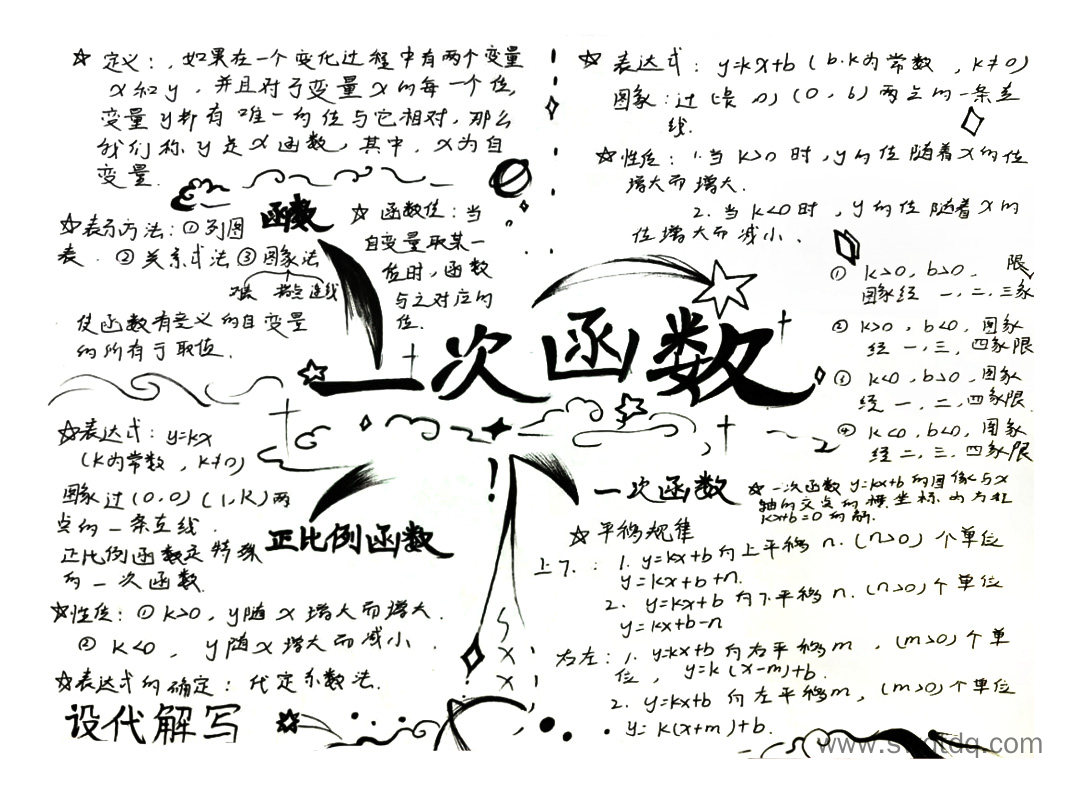 ☆ 定义:,如果在一个变化过程中有两个变量
x和y,并且对于变量x的每一个值,
变量y都有唯一的值与它相对,那么
我们称y是x函数,其中,x为自
变量.
函数
☆表示方法:①列图
表.②关系式法③图象法
描点 连线
使函数有意义的自变量
的所有于取值.
☆ 函数值:当
自变量取某一
值时,函数
与之对应的
值.
☆ 表达式:y=kx+b(b.k为常数,k≠0)
图象:过 (0,b)两点的一条直
线.
☆性质:1.当k>0时,y的值随着x的值
增大而增大.
2.当k<0时,y的值随着x的
值增大而减小.
① k>0,b>0. 限
图象经 一,二,三象
② k>0,b<0,图象
经一,三,四象限
③ k<0,b>0,图象
经一,二,四象限
④ k<0,b<0,图象
经二,三,四象限
一次函数
☆表达式:y=kx
(k为常数,k≠0)
图象过(0,0)(1,k)两
点的一条直线.
正比例函数是特殊
的一次函数.
正比例函数
☆性质:①k>0,y随x增大而增大.
②k<0,y随x增大而减小.
☆表达式的确定:代定系数法.
设代解写
一次函数
☆一次函数y=kx+b的图像与x
轴的交点的横坐标
kx+b=0的解.
☆平移规律
上下:1.y=kx+b向上平移n.(n>0)个单位
y=kx+b+n.
2. y=kx+b向下平移n.(n>0)个单位
y=kx+b-n
右左:1.y=kx+b向右平移m,(m>0)个单
位,y=k(x-m)+b.
2.y=kx+b向左平移m,(m>0)个单位
y=k(x+m)+b.